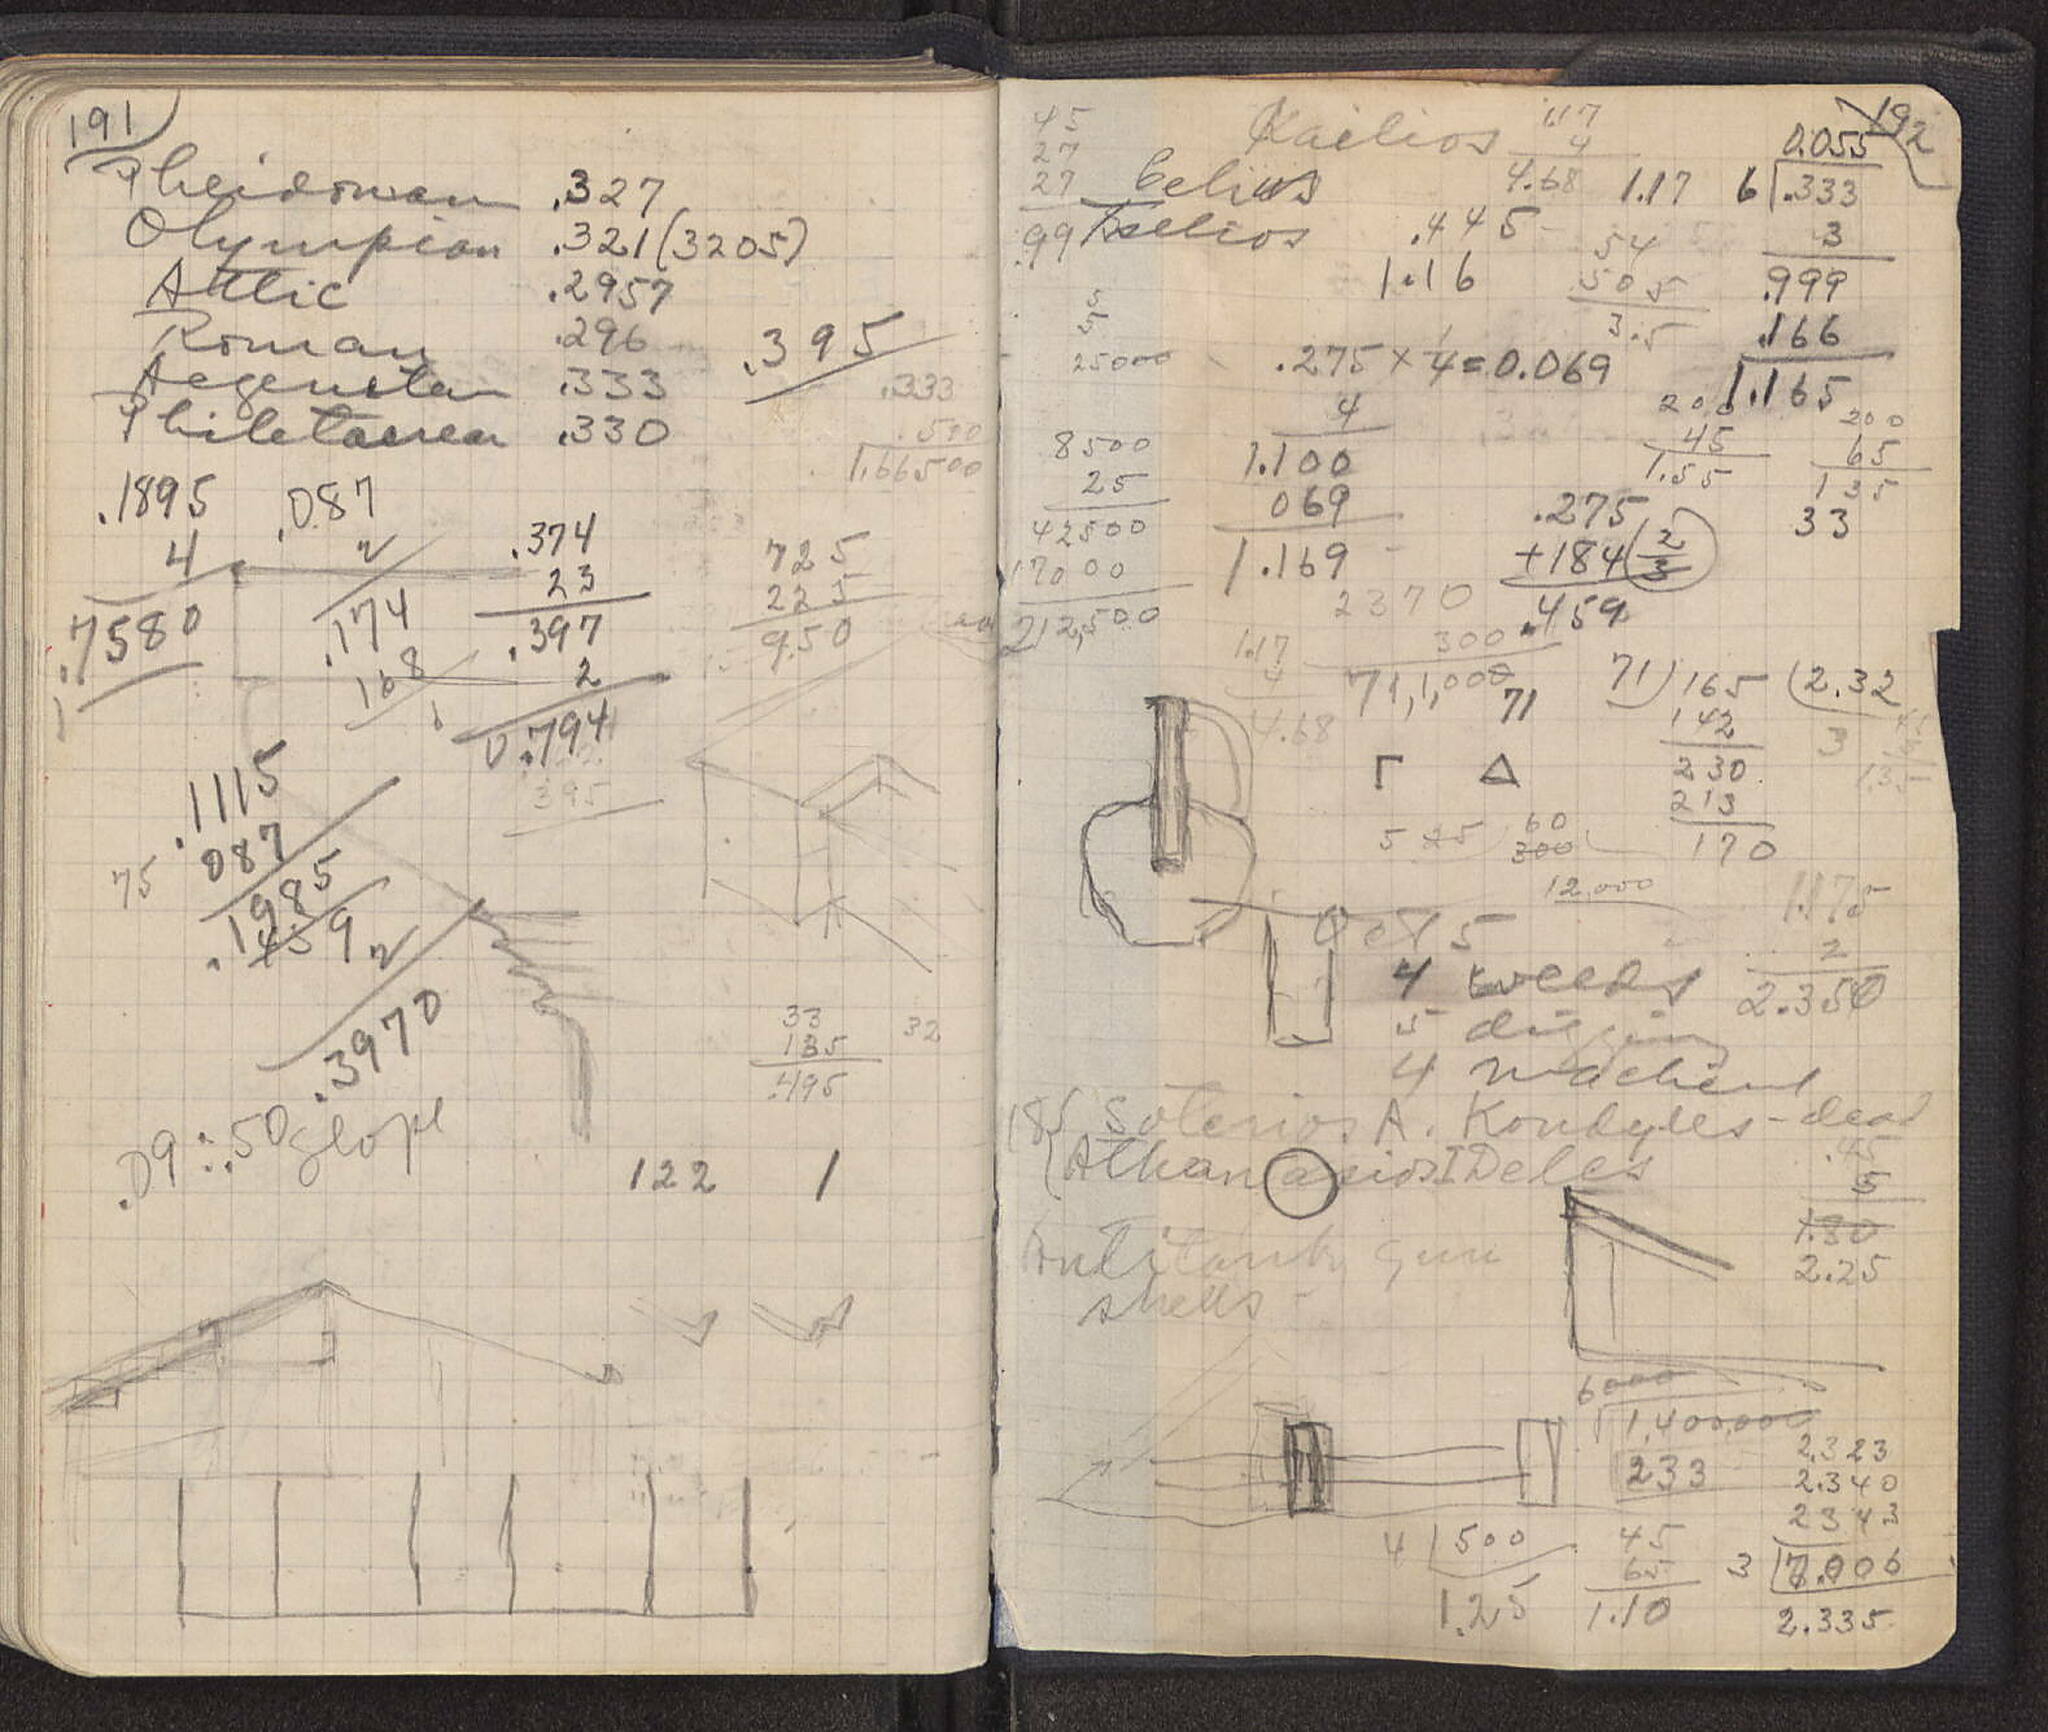 191
Pheidonean .327
Olympian .321 (3205)
Attic .2957
Roman .296
Aegenetan .333
Philetaerean .330
.395
.333
.500
1.66500
.1895
4
.7580
.087
2
.174
168
.374
23
.397
2
0.794
395
725
225
9.50
.1115
087
.1985
459
2
.3970
75
33
135
.495
32
.09 : .50 slope
122 1
192
45
27
27
.99
Kaelios
Celius
Kaelios
1.17
4
4.68
1.17
.445
1.16
54
505
3.5
0.055
6 .333
3
.999
.166
1.165
5
5
25000
.275 × 1/4 = 0.069
4
1.100
069
1.169
8500
25
42500
17000
212,500
200
45
1.55
200
65
135
33
.275
+184 2/3
.459
2370
300
71,1,000
71
1.17
4
4.68
71) 165 (2.32
142
230
213
170
3
Γ Δ
60
300
12.000
Oct 5
4 weeks
5 digging
4 machine
1.175
2
2.350
185 Soterios A. Kondyles - dead
Athanasios I Deles
.45
5
1.80
2.25
Antitank gun
shells -
6000
1,400,000
233
2.323
2.340
2343
3 7.006
2.335
4 500
1.25
45
65
1.10